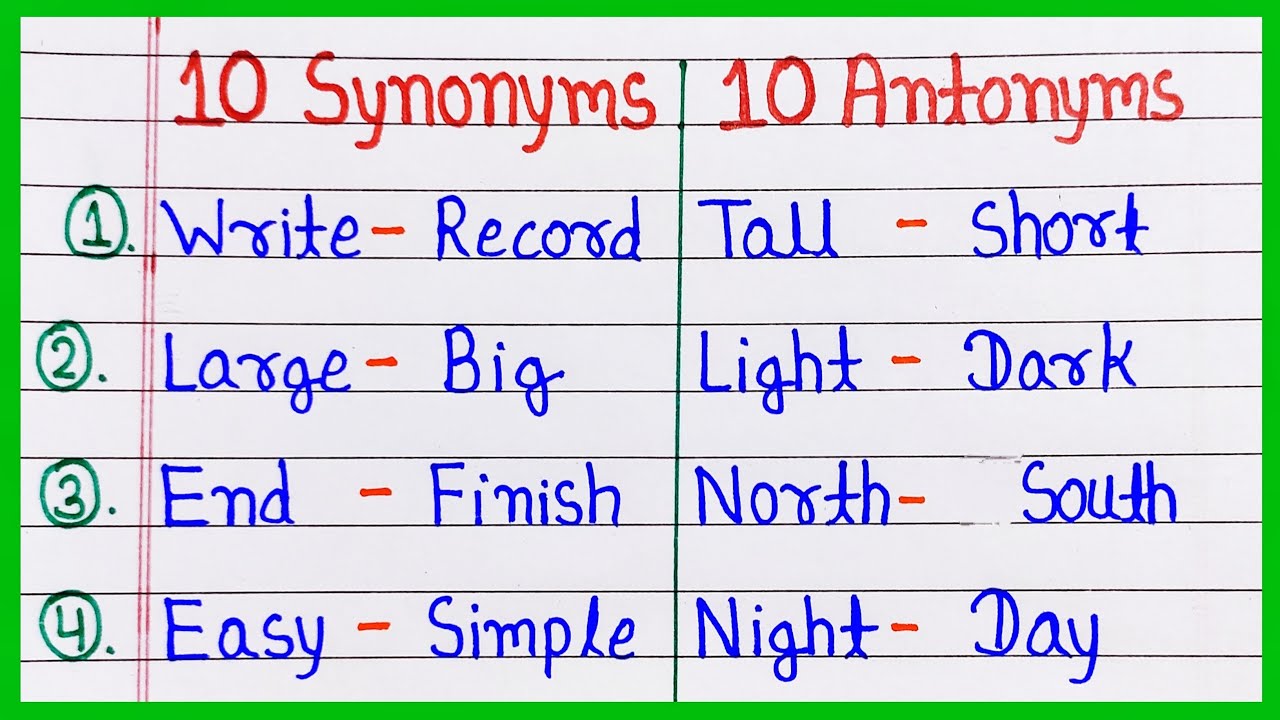 10 Synonyms 10 Antonyms
1. Write - Record Tall - Short
2. Large - Big Light - Dark
3. End - Finish North - South
4. Easy - Simple Night - Day